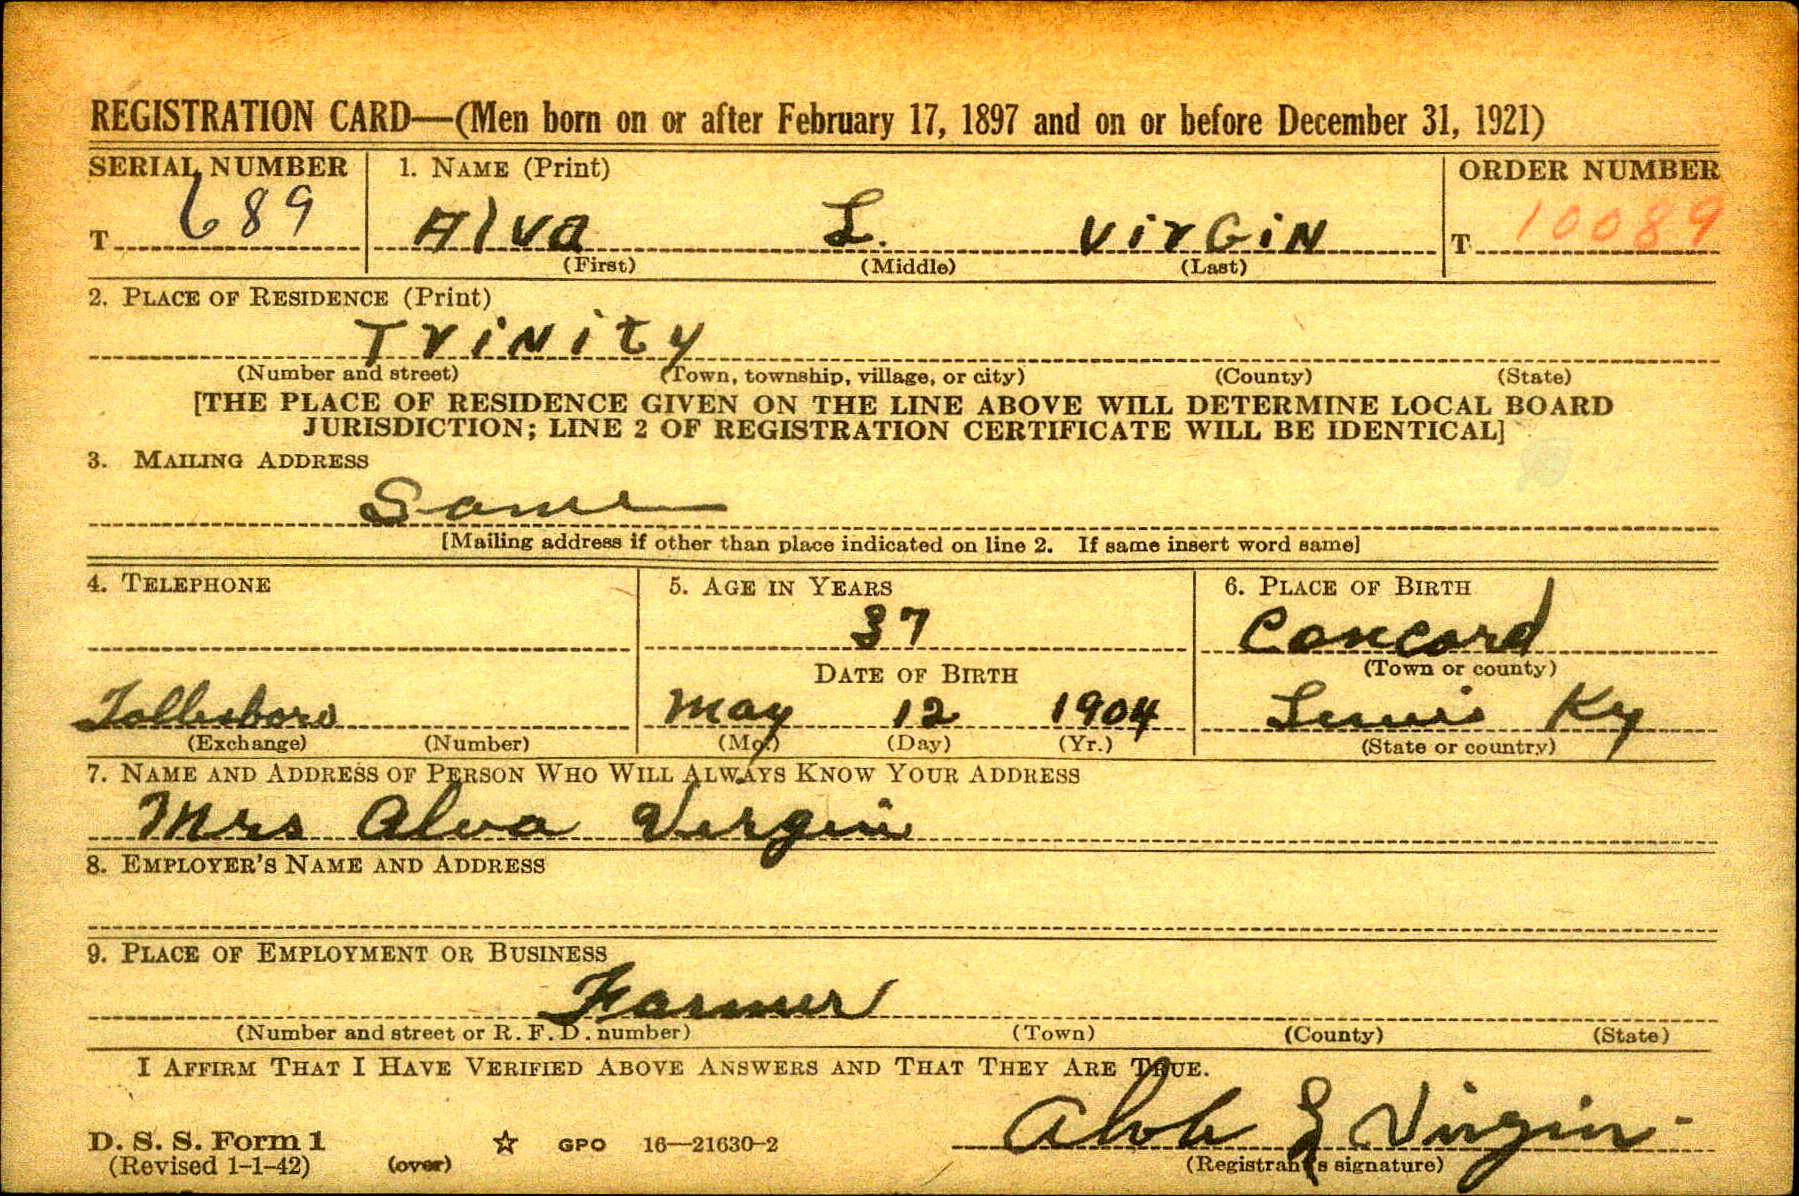 REGISTRATION CARD—(Men born on or after February 17, 1897 and on or before December 31, 1921)
SERIAL NUMBER 1. NAME (Print) ORDER NUMBER
T 689 Alva L. VirGiN T 10089
(First) (Middle) (Last)
2. PLACE OF RESIDENCE (Print)
TriNity
(Number and street) (Town, township, village, or city) (County) (State)
[THE PLACE OF RESIDENCE GIVEN ON THE LINE ABOVE WILL DETERMINE LOCAL BOARD
JURISDICTION; LINE 2 OF REGISTRATION CERTIFICATE WILL BE IDENTICAL]
3. MAILING ADDRESS
Same
[Mailing address if other than place indicated on line 2. If same insert word same]
4. TELEPHONE 5. AGE IN YEARS 6. PLACE OF BIRTH
37 Concord
DATE OF BIRTH (Town or county)
Tollesboro May 12 1904 Lewis Ky
(Exchange) (Number) (Mo.) (Day) (Yr.) (State or country)
7. NAME AND ADDRESS OF PERSON WHO WILL ALWAYS KNOW YOUR ADDRESS
Mrs Alva Virgin
8. EMPLOYER'S NAME AND ADDRESS
9. PLACE OF EMPLOYMENT OR BUSINESS
Farmer
(Number and street or R. F. D. number) (Town) (County) (State)
I AFFIRM THAT I HAVE VERIFIED ABOVE ANSWERS AND THAT THEY ARE TRUE.
D. S. S. Form 1 GPO 16—21630-2 Alva L Virgin
(Revised 1-1-42) (over) (Registrant's signature)